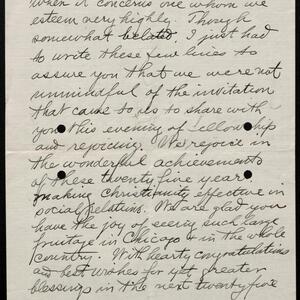 when it concerns one whom we
esteem very highly. Though
somewhat belated, I just had
to write these few lines to
assure you that we were not
unmindful of the invitation
that came to us to share with
you this evening of fellowship
and rejoicing. We rejoice in
the wonderful achievements
of these twenty five years
making Christianity effective in
social relations. We are glad you
have the joy of seeing such large
fruitage in Chicago & in the whole
country. With hearty congratulations
and best wishes for yet greater
blessings in the next twenty five